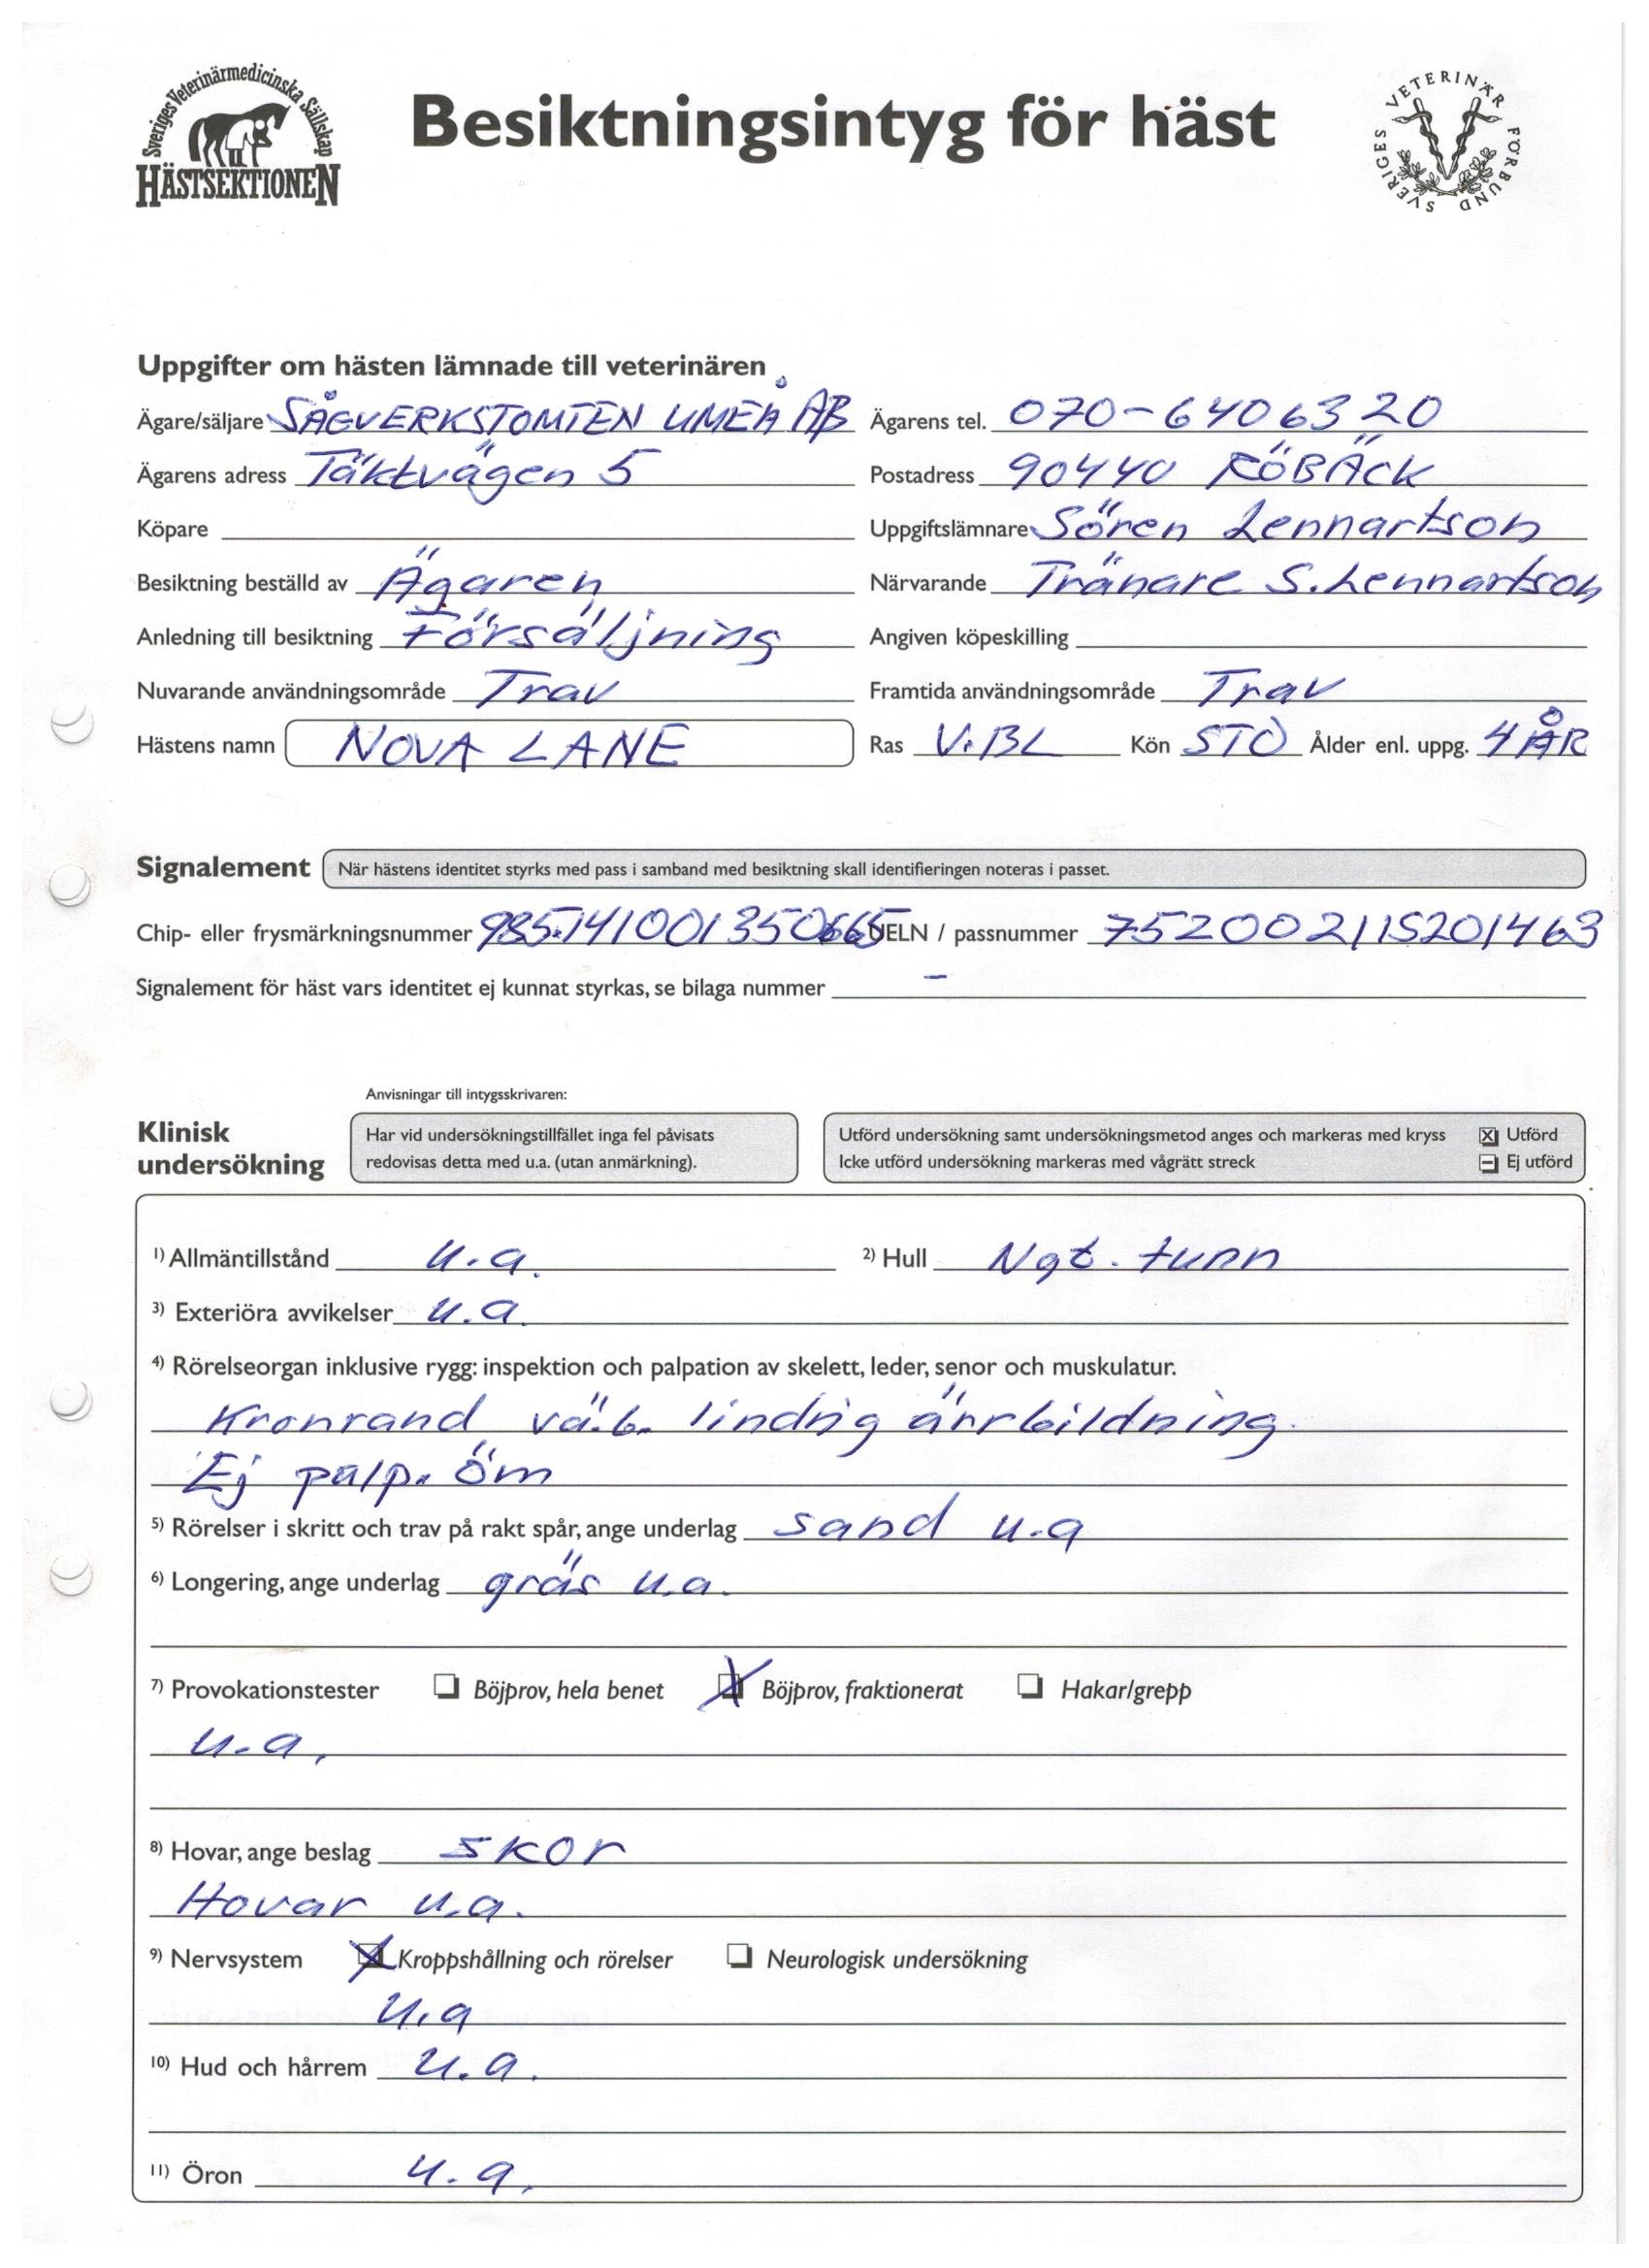 Sveriges Veterinärmedicinska Sällskap
HÄSTSEKTIONEN
Besiktningsintyg för häst
SVERIGES VETERINÄR FÖRBUND
Uppgifter om hästen lämnade till veterinären
Ägare/säljare SÅGVERKSTOMTEN UMEÅ AB Ägarens tel. 070-6406320
Ägarens adress Täktvägen 5 Postadress 90440 RÖBÄCK
Köpare Uppgiftslämnare Sören Lennartson
Besiktning beställd av Ägaren Närvarande Tränare S. Lennartson
Anledning till besiktning Försäljning Angiven köpeskilling
Nuvarande användningsområde Trav Framtida användningsområde Trav
Hästens namn NOVA LANE Ras V.BL Kön STO Ålder enl. uppg. 4 ÅR
Signalement När hästens identitet styrks med pass i samband med besiktning skall identifieringen noteras i passet.
Chip- eller frysmärkningsnummer UELN / passnummer 752002115201463
Signalement för häst vars identitet ej kunnat styrkas, se bilaga nummer –
Anvisningar till intygsskrivaren:
Klinisk undersökning
Har vid undersökningstillfället inga fel påvisats
redovisas detta med u.a. (utan anmärkning).
Utförd undersökning samt undersökningsmetod anges och markeras med kryss Utförd
Icke utförd undersökning markeras med vågrätt streck Ej utförd
1) Allmäntillstånd u.a. 2) Hull Ngt. tunn
3) Exteriöra avvikelser u.a.
4) Rörelseorgan inklusive rygg: inspektion och palpation av skelett, leder, senor och muskulatur.
Kronrand vä.b. lindrig ärrbildning.
Ej palp. öm
5) Rörelser i skritt och trav på rakt spår, ange underlag sand u.a
6) Longering, ange underlag gräs u.a.
7) Provokationstester Böjprov, hela benet Böjprov, fraktionerat Hakar/grepp
u.a.
8) Hovar, ange beslag skor
Hovar u.a.
9) Nervsystem Kroppshållning och rörelser Neurologisk undersökning
u.a
10) Hud och hårrem u.a.
11) Öron u.a.